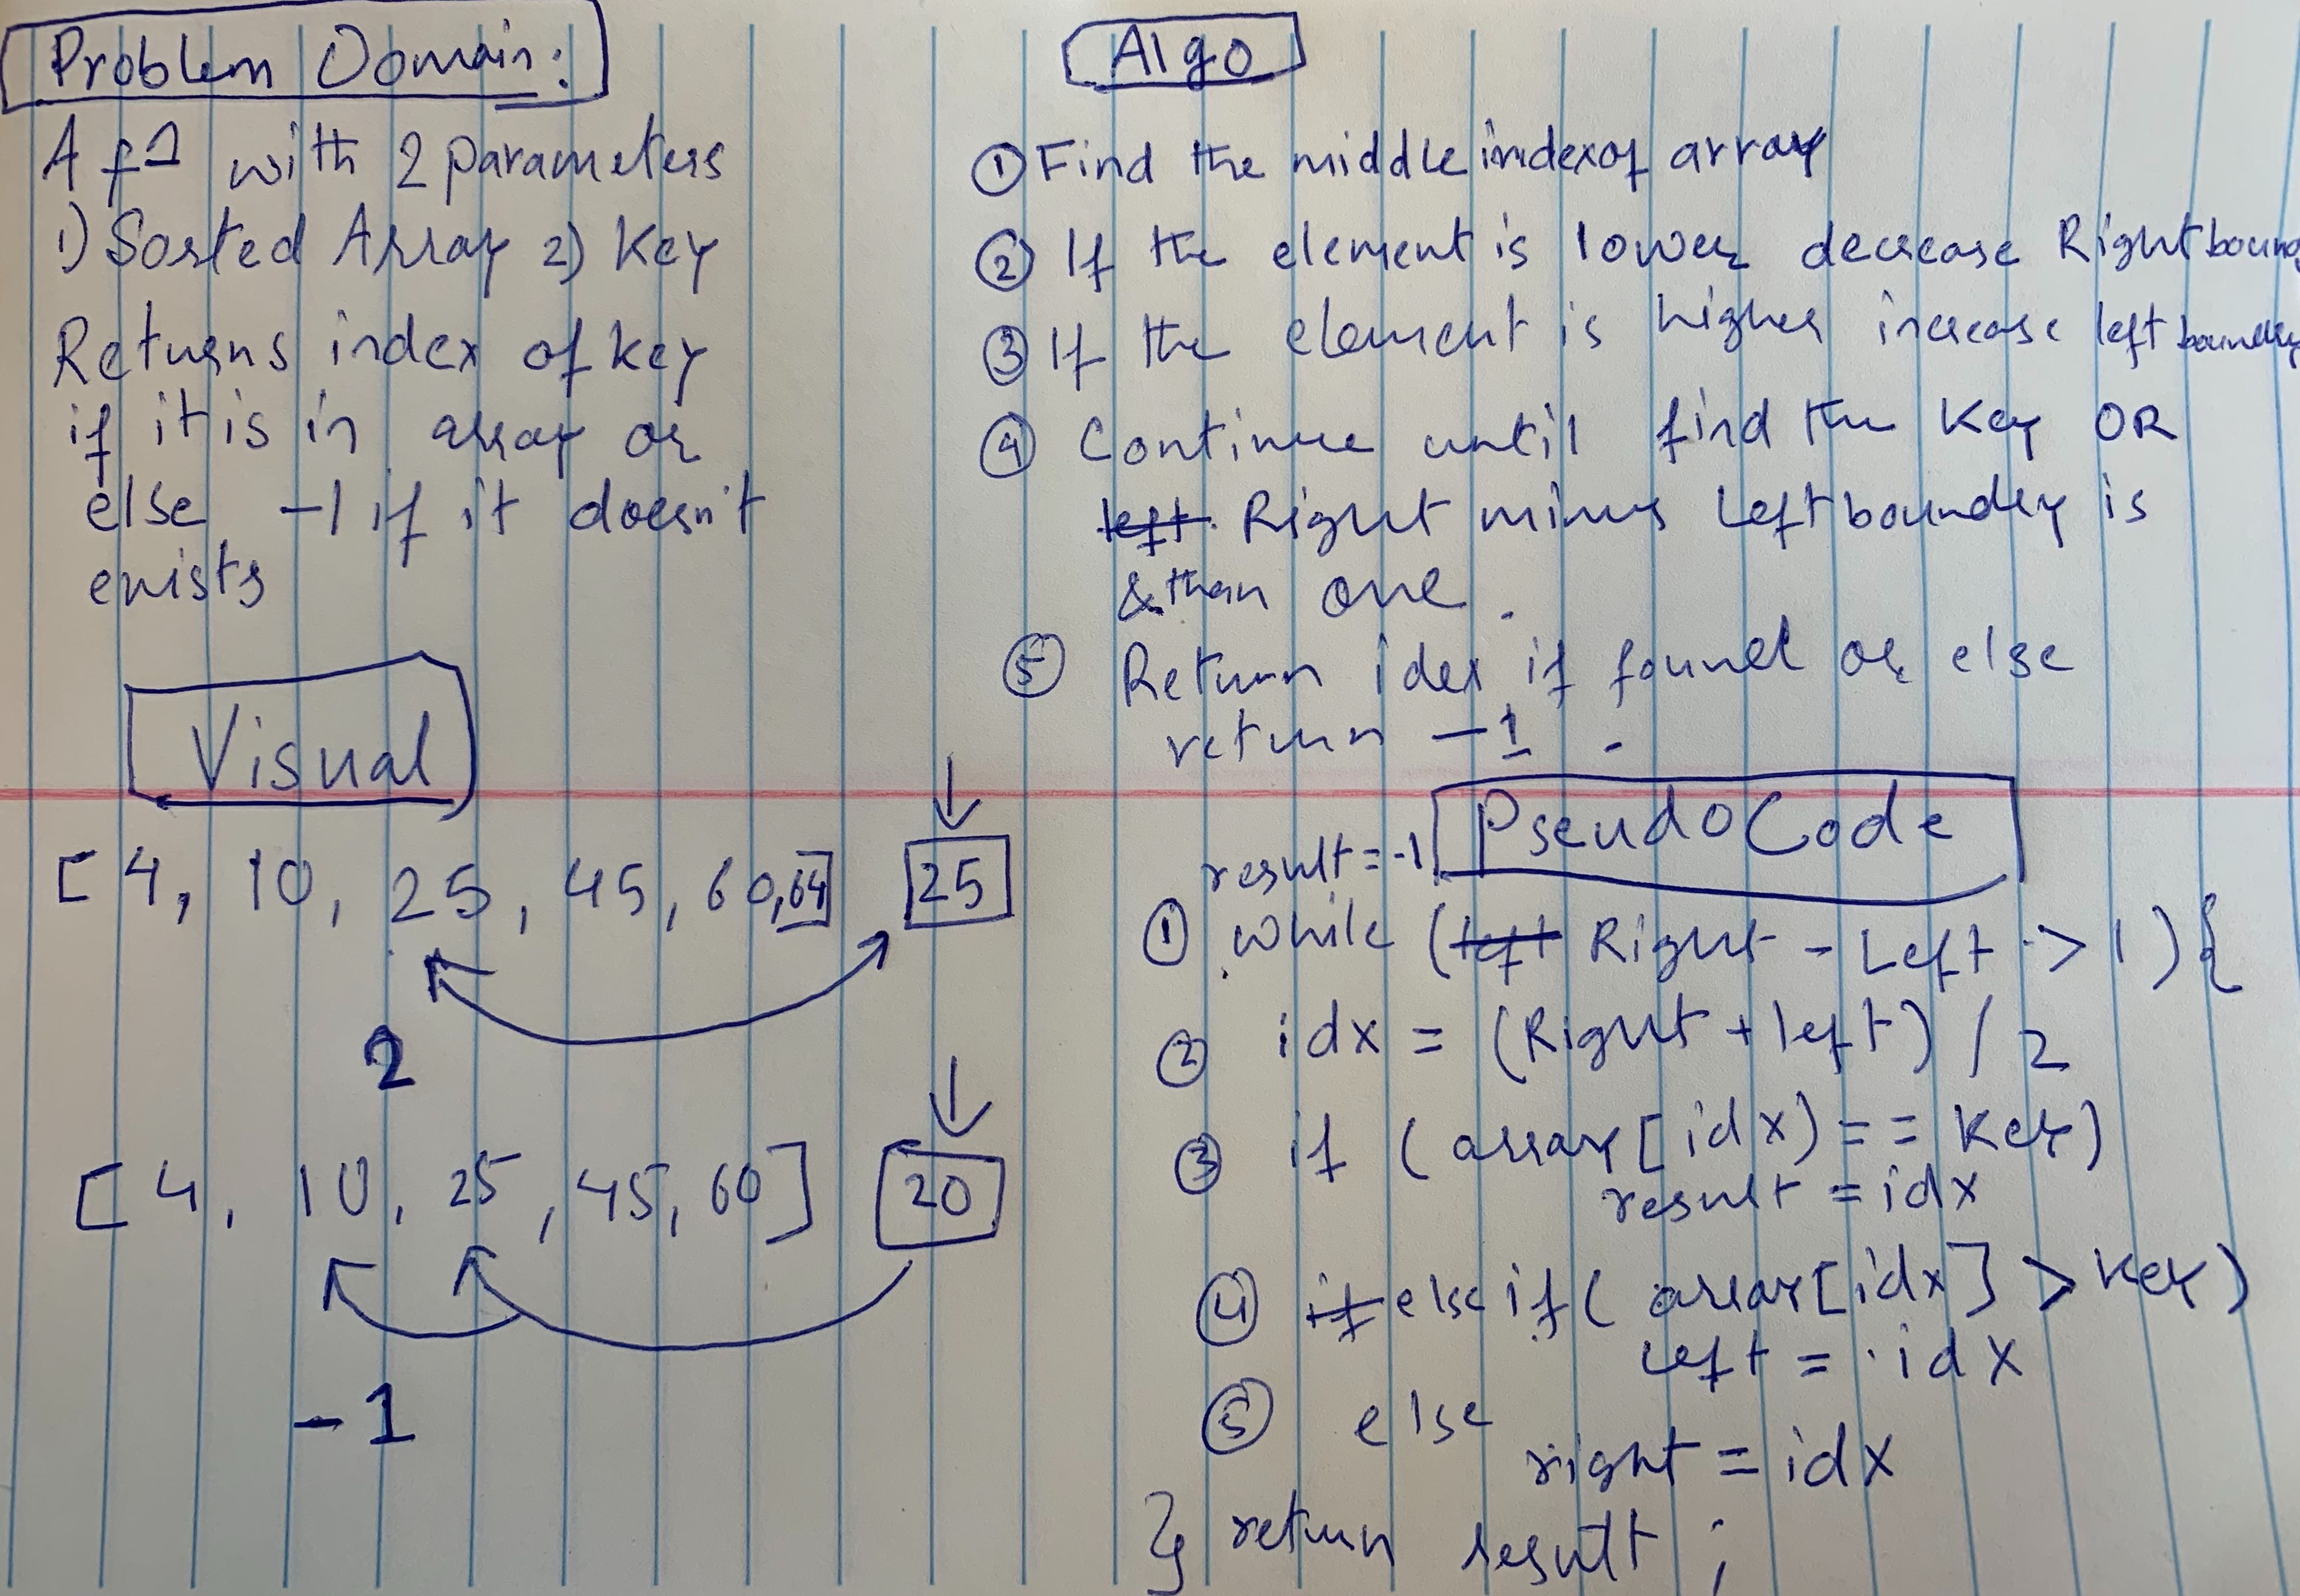 Problem Domain:
A fn with 2 parameters
1) Sorted Array 2) Key
Returns index of key
if it is in array or
else -1 if it doesn't
exists
Visual
[4, 10, 25, 45, 60, 64] 25
2
[4, 10, 25, 45, 60] 20
-1
Algo
① Find the middle index of array
② If the element is lower decrease Right
③ If the element is higher increase left boundry
④ Continue until find the Key OR
left Right minus left boundry is
than one.
⑤ Return idex if found or else
return -1.
PseudoCode
result = -1
① while (left Right - Left > 1) {
② idx = (Right + left) / 2
③ if (array[idx) == Key)
result = idx
④ if else if (array[idx] > Key)
left = idx
⑤ else
right = idx
} return result;